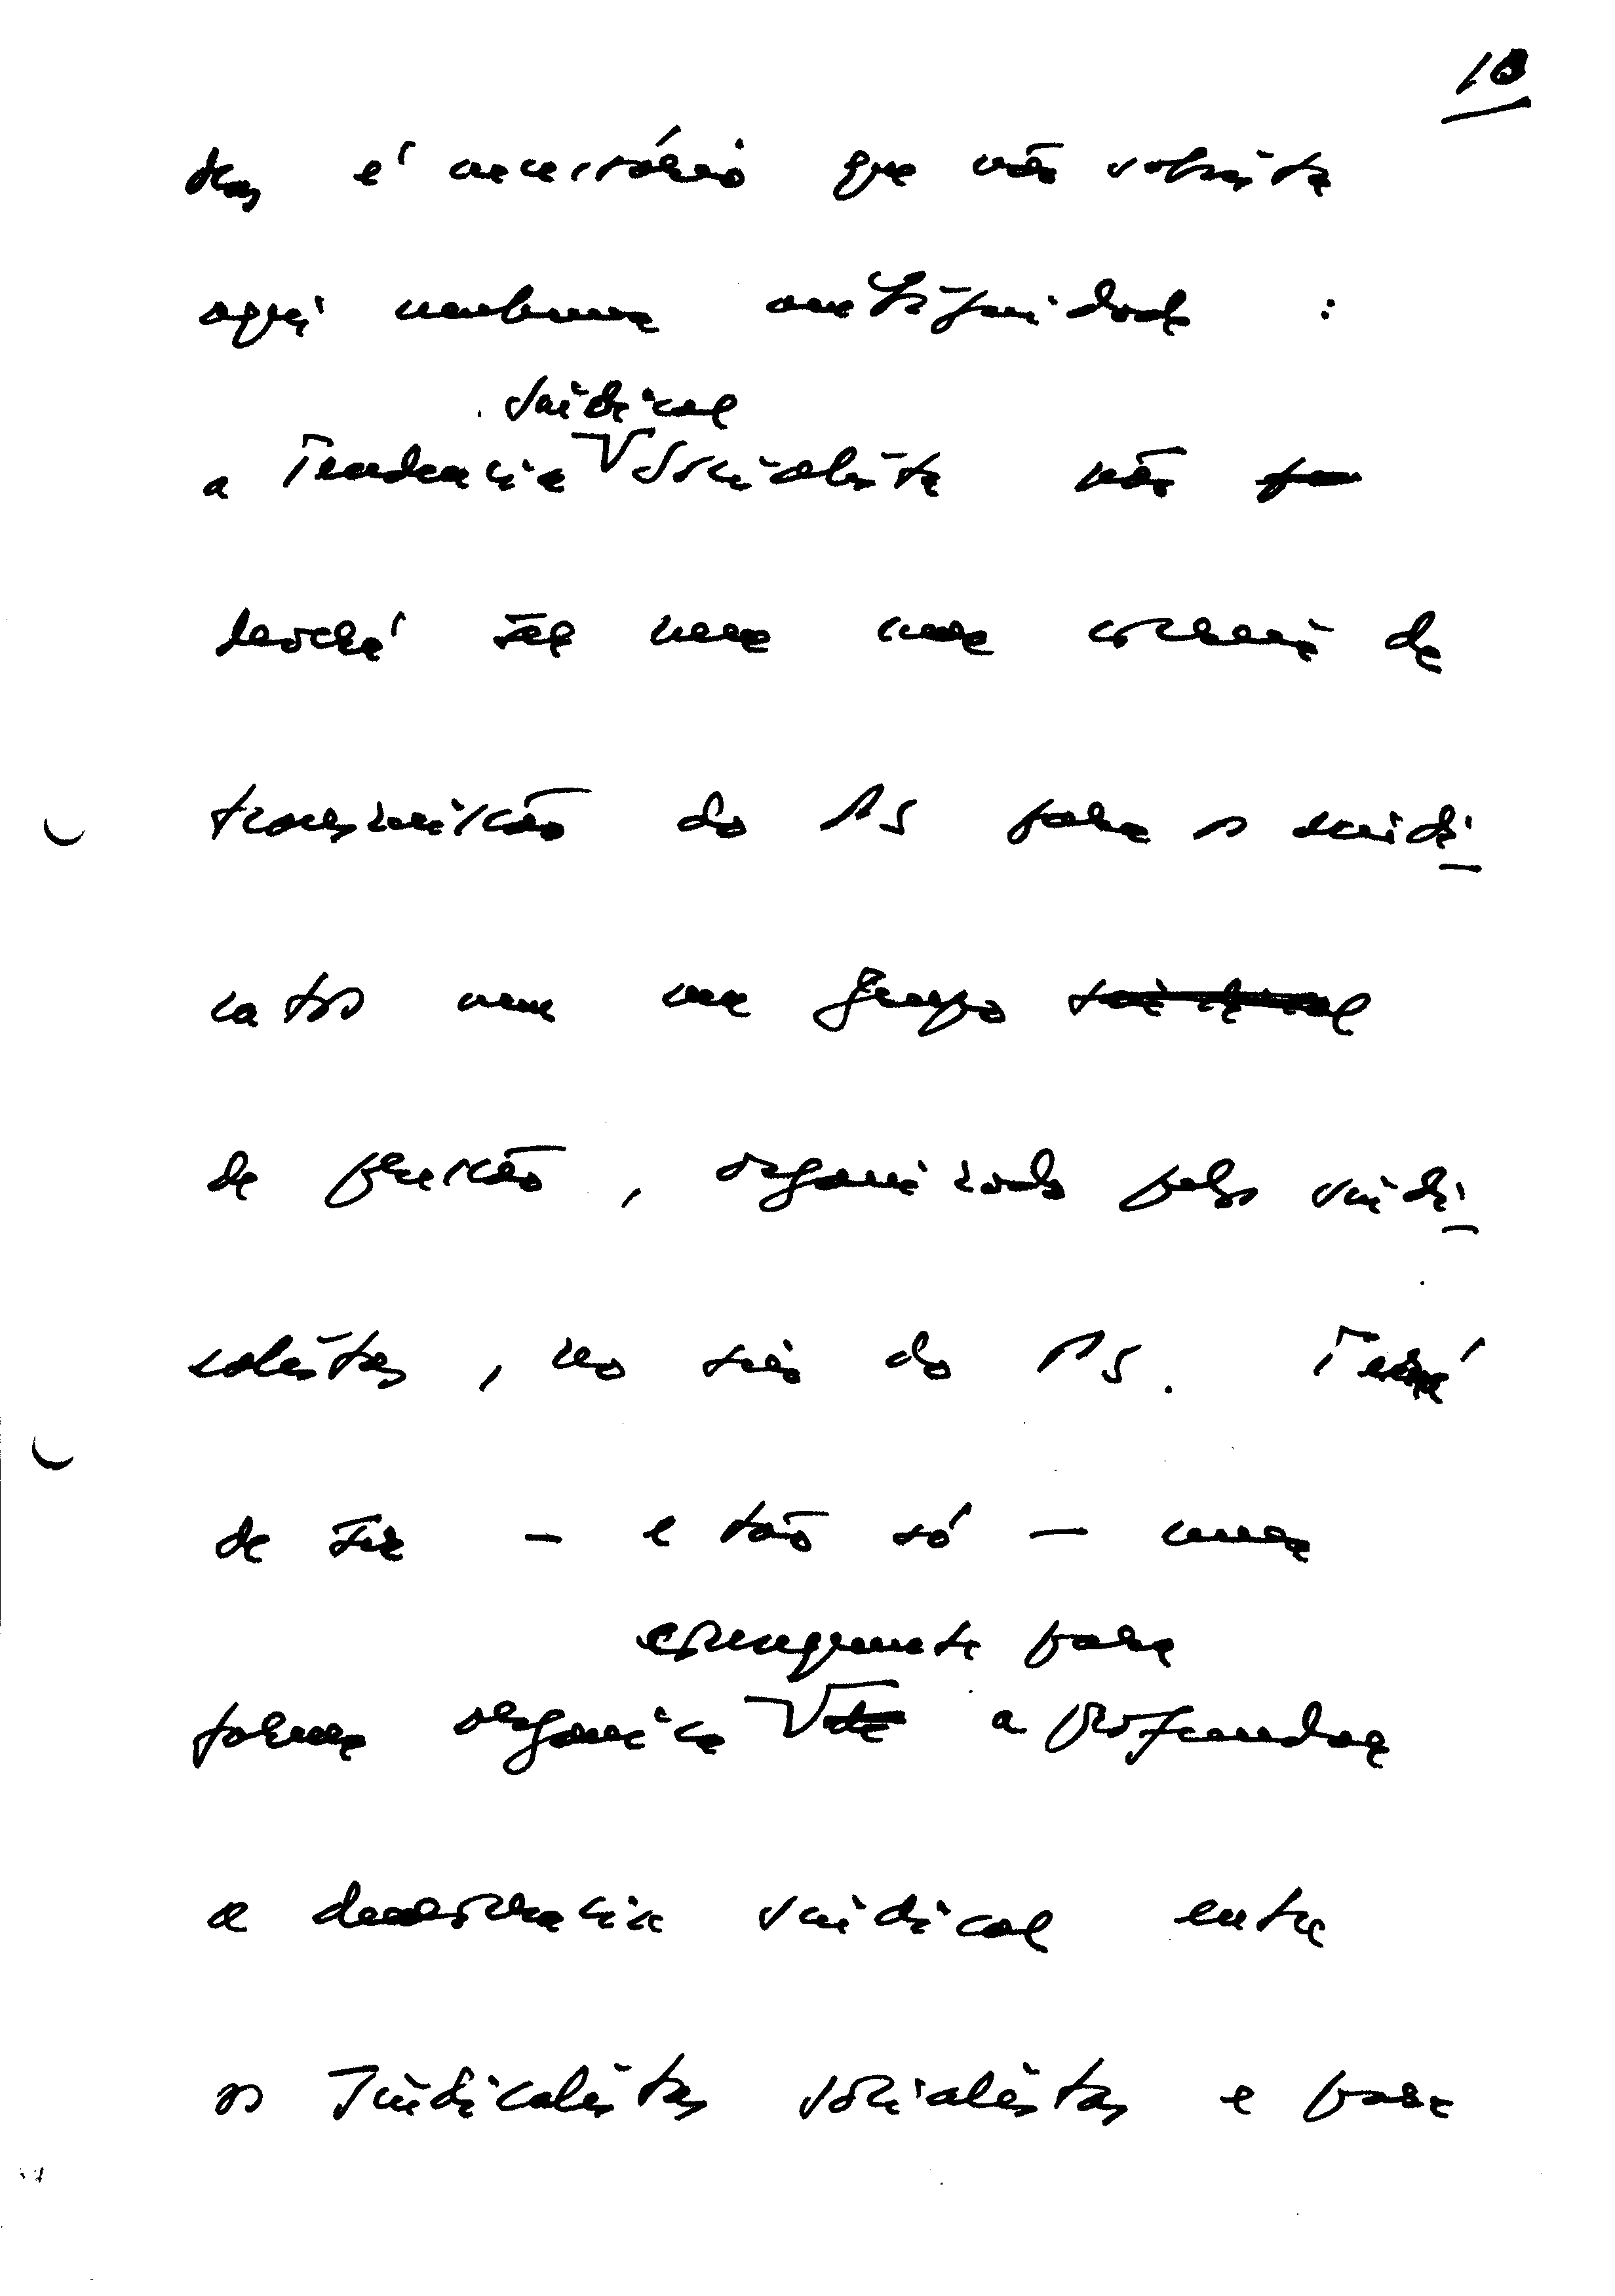 10
Mas é necessário que não subsista
aqui nenhuma ambiguidade :
sindical
a Tendência Socialista não
deverá ser nem uma correia de
transmissão do PS para o sindi
catos nem um grupo sindical
de pressão, organizado pelos sindi
calistas, no seio do PS. Terá
de ser — e tão só — uma
consequente para
forma orgânica de a profundar
a democracia sindical entre
os Sindicalistas socialistas e para